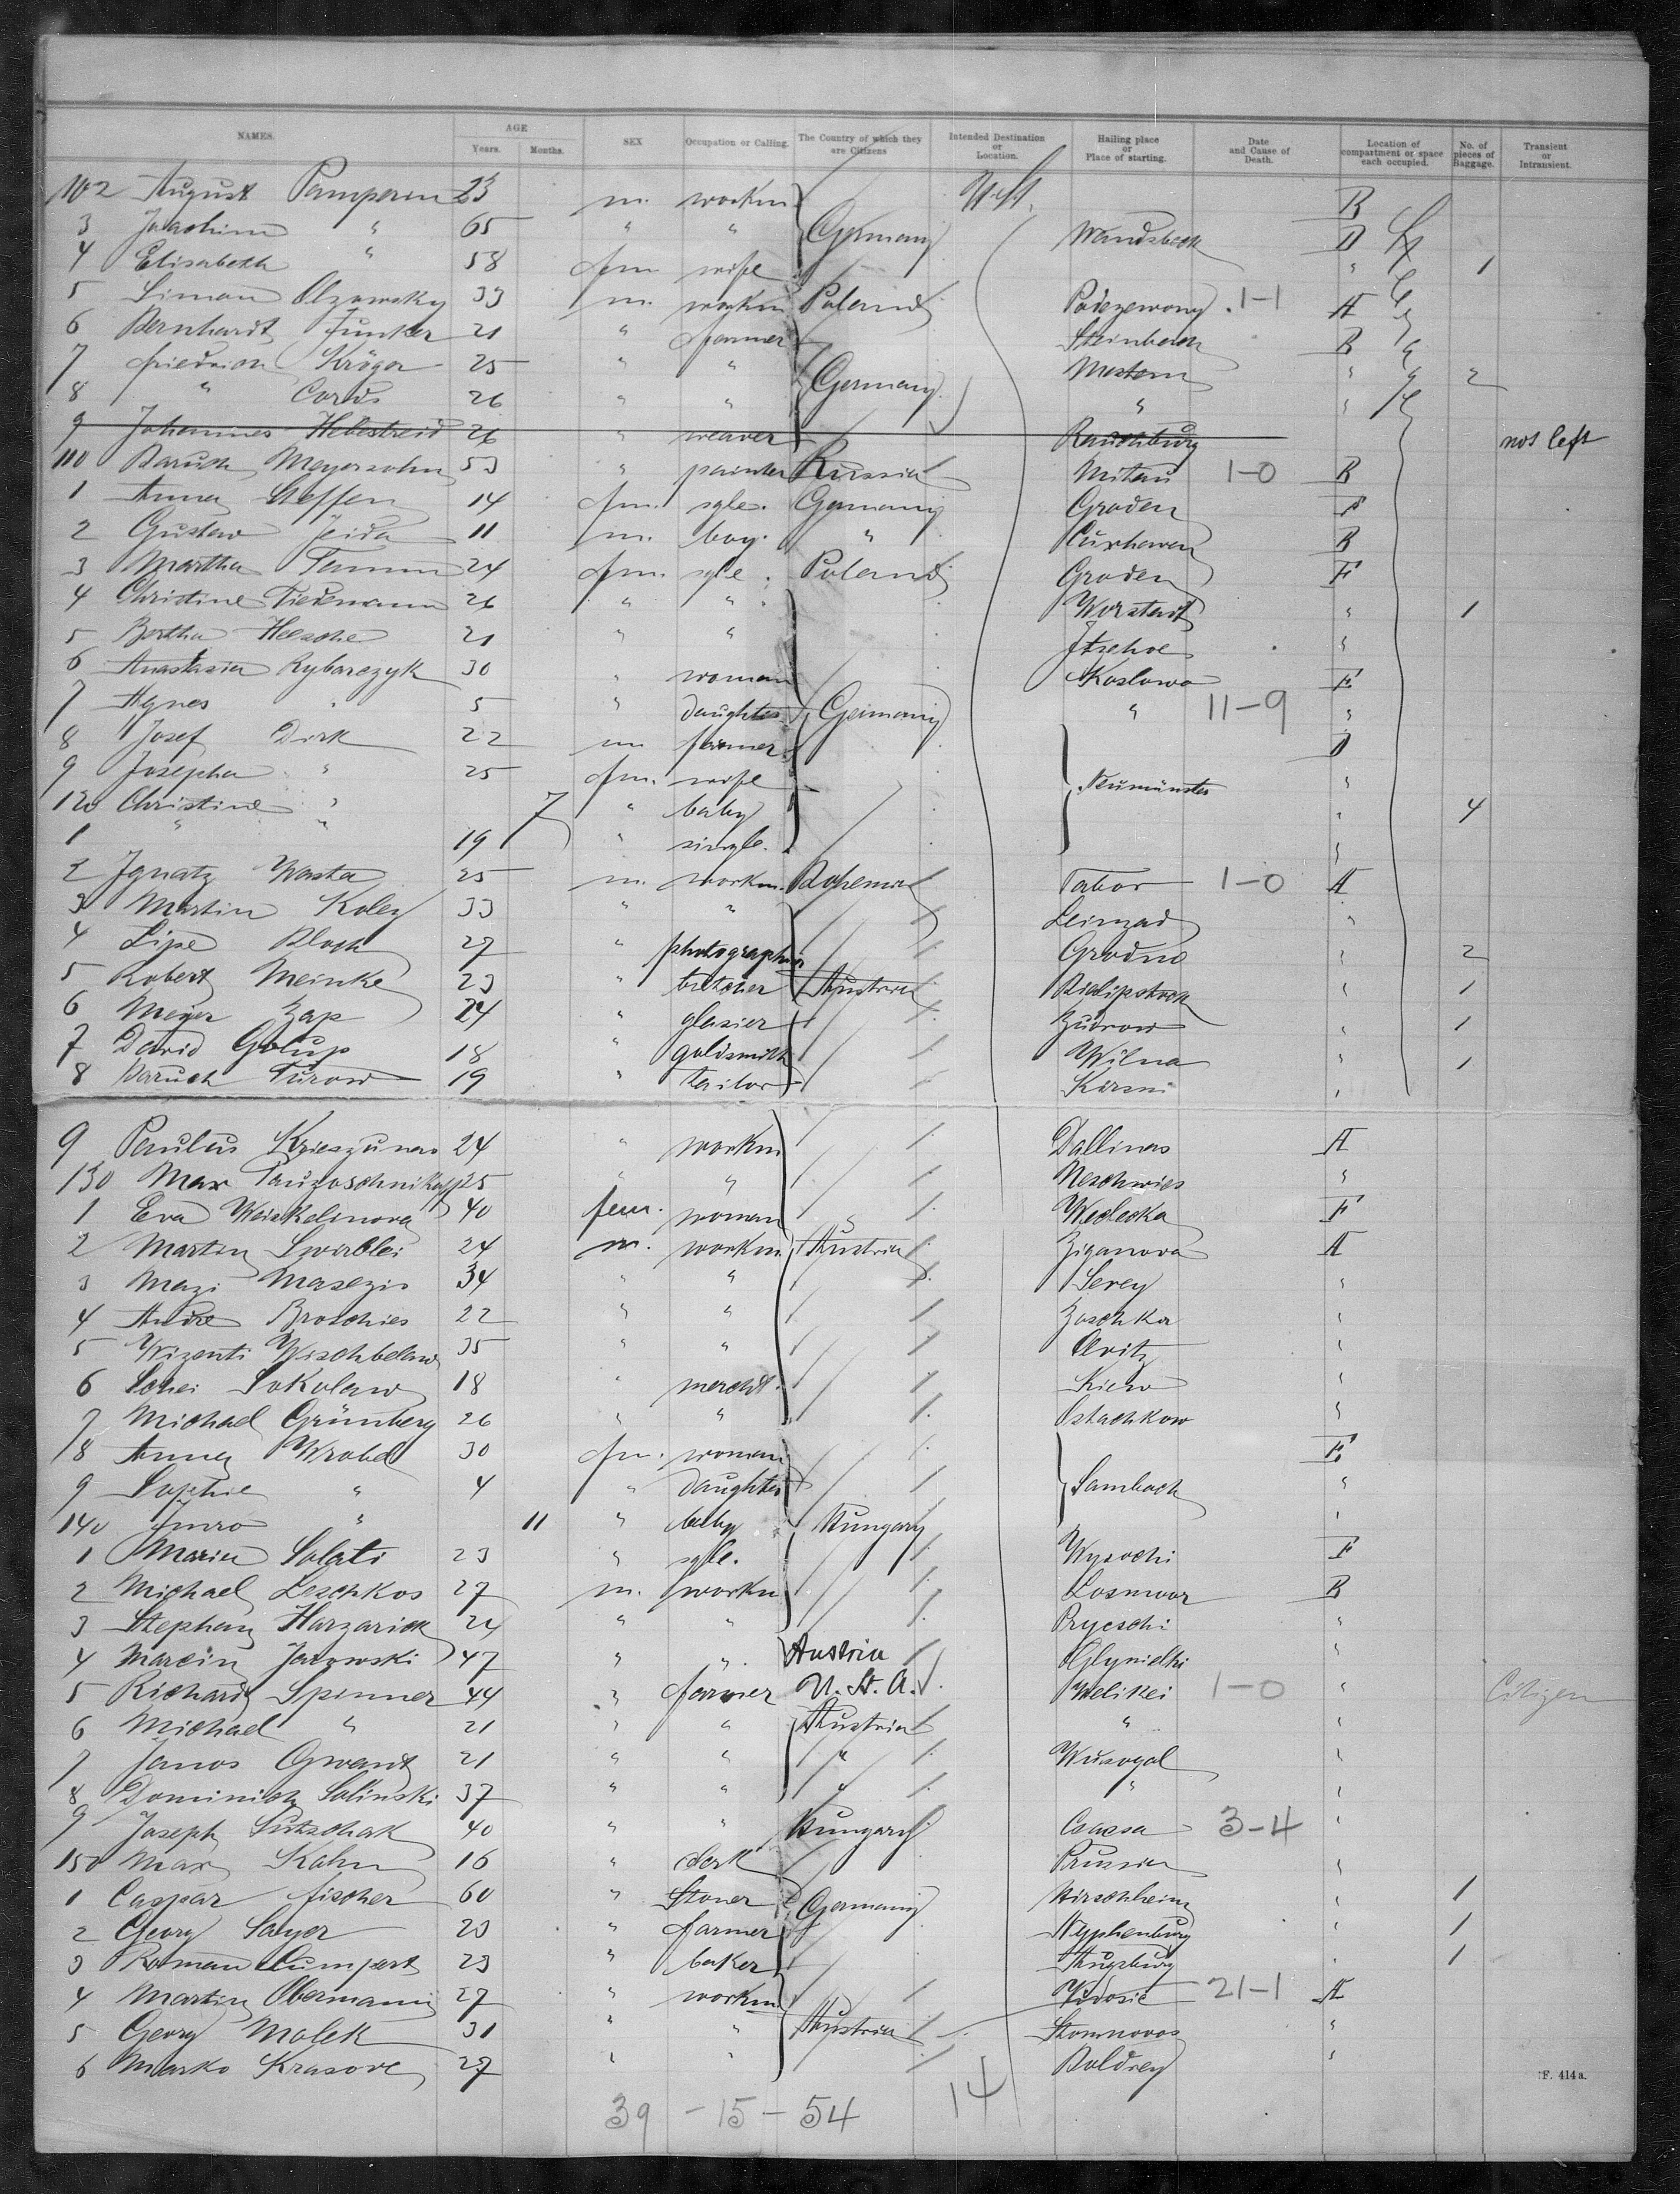 NAMES. AGE Years. Months. SEX Occupation or Calling. The Country of which they are Citizens Intended Destination or Location. Hailing place or Place of starting. Date and Cause of Death. Location of compartment or space each occupied. No. of pieces of Baggage. Transient or Intransient.
102 August Pamperin 23 m. workm. U.St. B
3 Joachim " 65 " " Germany Wandsbeck D
4 Elisabeth " 58 fem wife " 1
5 Simon Olzowsky 33 m. workm Poland 1-1 A
6 Bernhardt Junker 21 " farmer Steinbeck B
7 friedrich Kröger 25 " " Germany " 2
8 " Cords 26 " " " "
9 Johannes Hebestreid 26 " weaver not left
110 Baruch Meyersohn 53 " painter Russia Mitau 1-0 B
1 Anna Steffen 14 fem. sgle. Germany Groden F
2 Gustav Jeida 11 m. boy. " Cuxhaven B
3 Martha Tamm 24 fem. sgle. Poland Groden F
4 Christine Tiedemann 26 " " " 1
5 Bertha Heesche 21 " " Itzehoe "
6 Anastasia Rybarczyk 30 " woman Koslowo E
7 Agnes " 5 " daughter Germany " 11-9 "
8 Josef Dirk 22 m farmer D
9 Josepha " 25 fem. wife Neumünster "
120 Christine " 7 " baby " 4
1 " " 19 " single. "
2 Ignatz Wasta 25 m. workm. Bohemia Tabor 1-0 A
3 Martin Koley 33 " " "
4 Lipe Bloch 27 " photographer Grodno " 2
5 Robert Meinke 23 " butcher Austria " 1
6 Meyer Zap 24 " glasier " 1
7 David Golup 18 " goldsmith Wilna " 1
8 Baruch Turow 19 " tailor "
9 Paulus 24 " workm Dallinas A
130 Max 25 " " Neschwies "
1 Eva 40 fem. woman F
2 Martin Swirblei 24 m. workm Austria Ziganova A
3 Mazi Masezis 34 " " Serey "
4 Andre Broschies 22 " " Zoschka "
5 Wizenti 35 " " "
6 Sokolow 18 " mercht. Kiew "
7 Michael Grünberg 26 " " Ostachkow "
8 Anna Wrobel 30 fem. woman E
9 Sophie " 4 " daughter Sambach "
140 " 11 " baby Hungary "
1 Maria Salati 23 " sgle. Wysochi F
2 Michael Leschkos 27 m. workm Losmoor B
3 Stephan Harzarick 24 " " "
4 Marcin Jarowski 47 " " Austria "
5 Richard Spinner 44 " farmer U. St. A. Welikei 1-0 " Citizen
6 Michael " 21 " " Austria " "
7 Janos Gwant 21 " " " "
8 Dominick Solinski 37 " " " " "
9 Joseph Sutschak 40 " " Hungary Csacsa 3-4 "
150 Max Kahn 16 " clerk Prussia "
1 Caspar fischer 60 " Germany Hirschheim " 1
2 Georg Sayer 23 " farmer Nymphenburg " 1
3 Roman Cumpert 23 " baker Augsburg " 1
4 Martin Obermann 27 " workm 21-1 A
5 Georg Malek 31 " " Austria "
6 Marko Krasove 27 " " Boldrey "
F. 414 a.
39 - 15 - 54 14